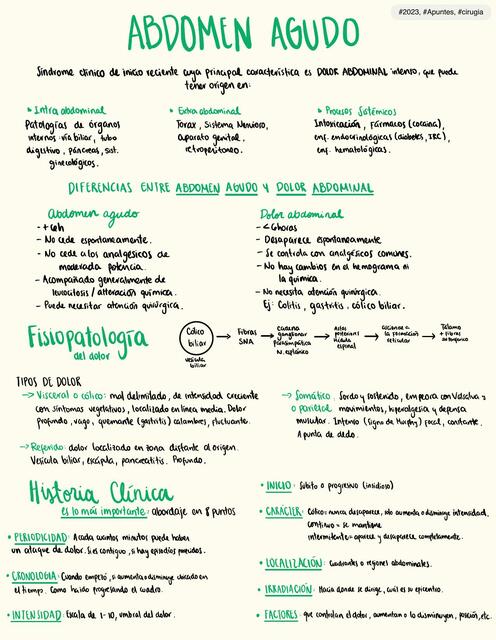 #2023, #Apuntes, #cirugia
ABDOMEN AGUDO
Síndrome clínico de inicio reciente cuya principal característica es DOLOR ABDOMINAL intenso, que puede
tener origen en:
Intra abdominal
Patologías de órganos
internos: vía biliar, tubo
digestivo, páncreas, sist.
ginecológicos.
Extra abdominal
Torax, Sistema Nervioso,
aparato genital,
retroperitoneo.
Procesos Sistémicos
Intoxicación, Fármacos (cocaína),
enf. endocrinológicas (diabetes, IRC),
enf. hematológicas.
DIFERENCIAS ENTRE ABDOMEN AGUDO Y DOLOR ABDOMINAL
Abdomen agudo
- +6h
- No cede espontaneamente.
- No cede a los analgésicos de
moderada potencia.
- Acompañado generalmente de
leucocitosis / alteración química.
- Puede necesitar atención quirúrgica.
Dolor abdominal
- <6horas
- Desaparece espontaneamente
- Se controla con analgésicos comunes.
- No hay cambios en el hemograma ni
la química.
- No necesita atención quirúrgica.
Ej: Colitis, gastritis, cólico biliar.
Fisiopatología
del dolor
Cólico
biliar
vesícula
biliar
→ Fibras
SNA
→ Cadena
ganglionar
parasimpática
N. esplácnico
→ Astas
posteriores
médula
espinal
→ asciende a
la formación
reticular
→ Tálamo
+ fibras
TIPOS DE DOLOR
→ Visceral o cólico: mal delimitado, de intensidad creciente
con síntomas vegetativos, localizado en línea media. Dolor
profundo, vago, quemante (gastritis) calambres, fluctuante.
→ Referido: dolor localizado en zona distante al origen.
Vesícula biliar, escápula, pancreatitis. Profundo.
→ Somático. Sordo y sostenido, empeora con Valsalva y
o parietal movimientos, hiperalgesia y defensa
muscular. Intenso (Signo de Murphy) focal, constante.
A punta de dedo.
Historia Clínica
es lo más importante: abordaje en 8 puntos
• PERIODICIDAD: A cada cuantos minutos puede haber
un ataque de dolor. Si es contiguo, si hay episodios parecidos.
• CRONOLOGIA: Cuando empezó, si aumenta o disminuye ubicado en
el tiempo. Como ha ido progresando el cuadro.
• INTENSIDAD: Escala de 1-10, umbral del dolor.
• INICIO: Súbito o progresivo (insidioso)
• CARÁCTER: Cólico: nunca desaparece, solo aumenta o disminuye intensidad,
continuo = se mantiene
intermitente = aparece y desaparece completamente.
• LOCALIZACIÓN: Cuadrantes o regiones abdominales.
• IRRADIACIÓN: Hacia donde se dirige, cuál es su epicentro.
• FACTORES: que controlan el dolor, aumentan o lo disminuyen, posición, etc.